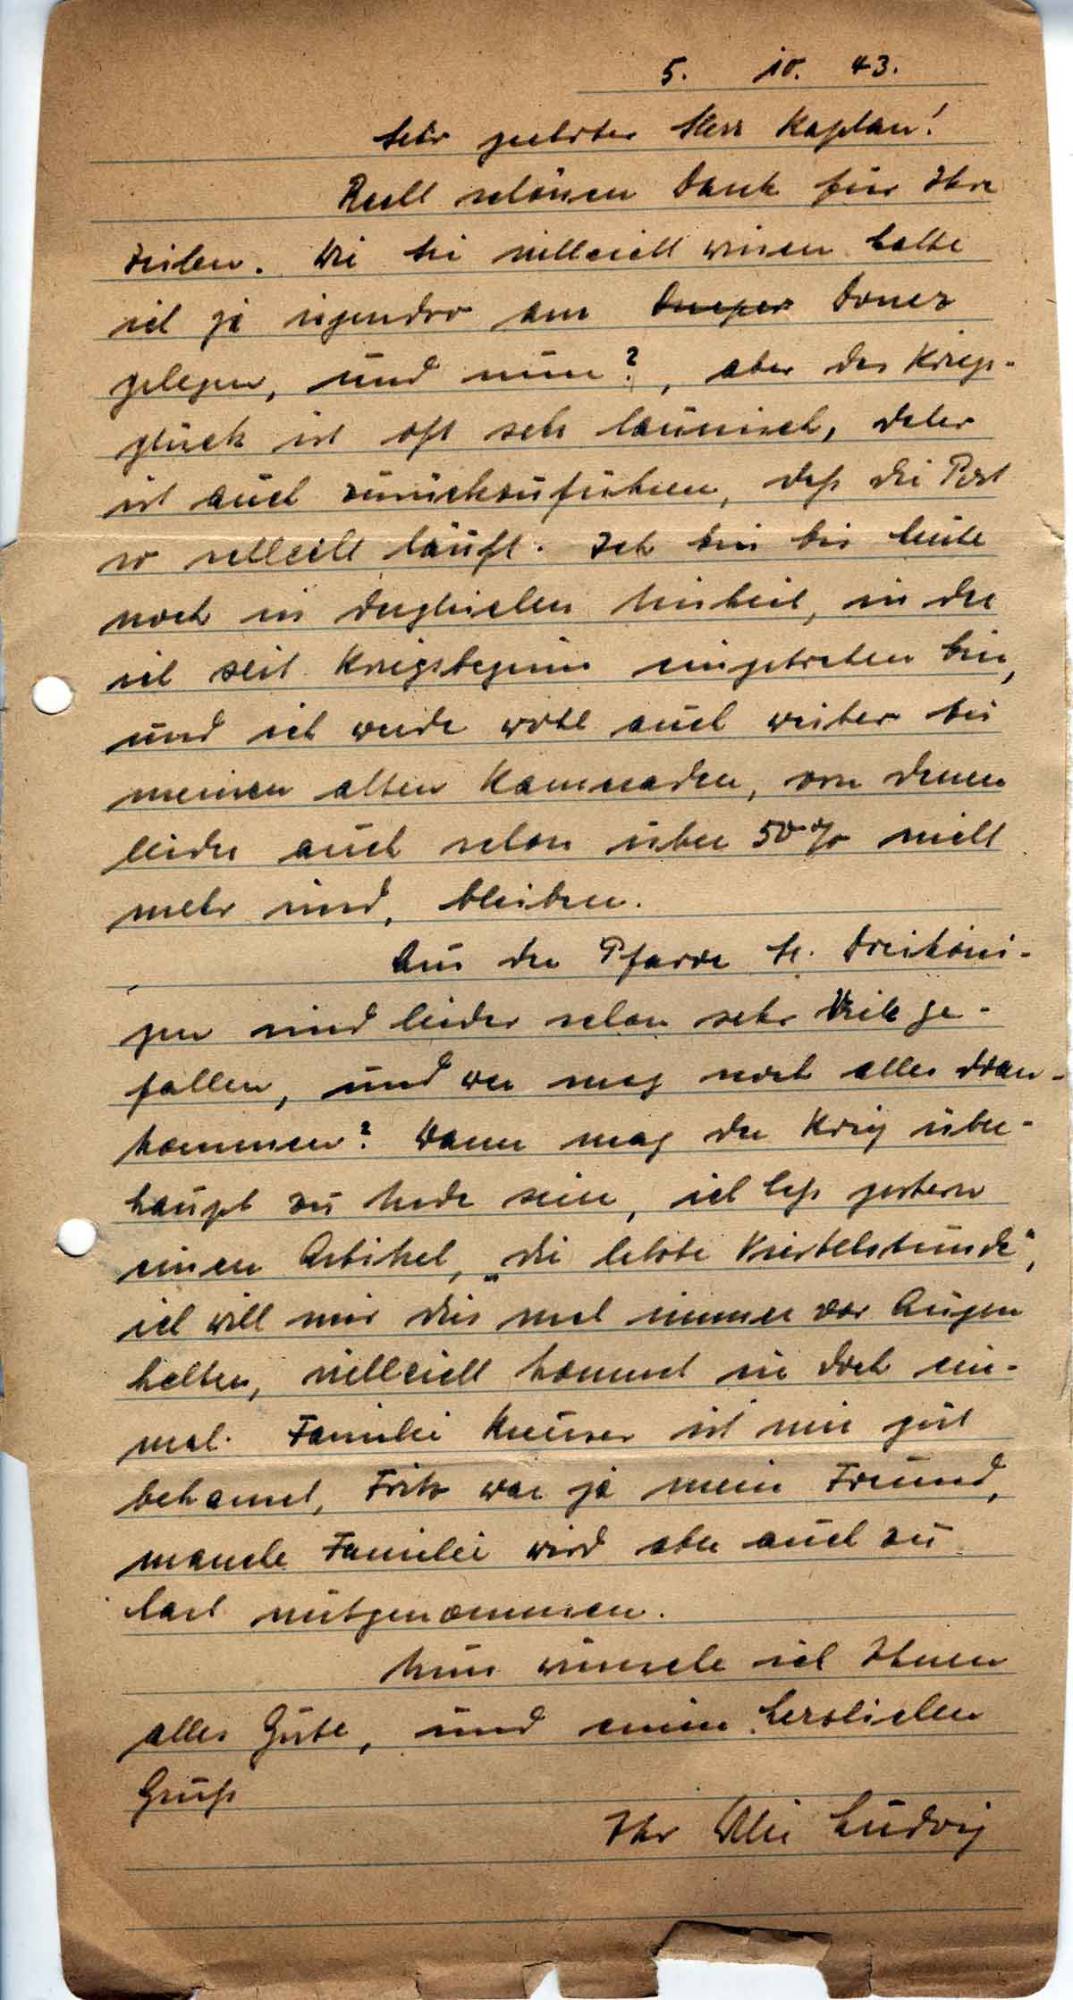 5. 10. 43.
Sehr geehrter Herr Kaplan!
Recht schönen Dank für Ihre
Zeilen. Wie Sie vielleicht wissen hatte
ich ja irgendwo am Dneper Donez
gelegen, und nun?, aber das Kriegs-
glück ist oft sehr launisch, daher
ist auch zurückzuführen, daß die Post
so schlecht läuft. Ich bin bis heute
noch in dergleichen Einheit, in der
ich seit Kriegsbeginn eingetreten bin,
und ich werde wohl auch weiter bei
meinen alten Kameraden, von denen
leider auch schon über 50% nicht
mehr sind, bleiben.
Aus der Pfarre St. Dreiköni-
gen sind leider schon sehr Viele ge-
fallen, und wer mag noch alles dran-
kommen? Wann mag der Krieg über-
haupt zu Ende sein, ich laß gestern
einen Artikel, „die letzte Viertelstunde",
ich will mir dies mal immer vor Augen
halten, vielleicht kommt sie doch ein-
mal. Familie ist mir gut
bekannt, Fritz war ja mein Freund,
manche Familie wird aber auch zu
hart mitgenommen.
Nun wünsche ich Ihnen
alles Gute, und einen herzlichen
Gruß
Ihr Willi Ludwig